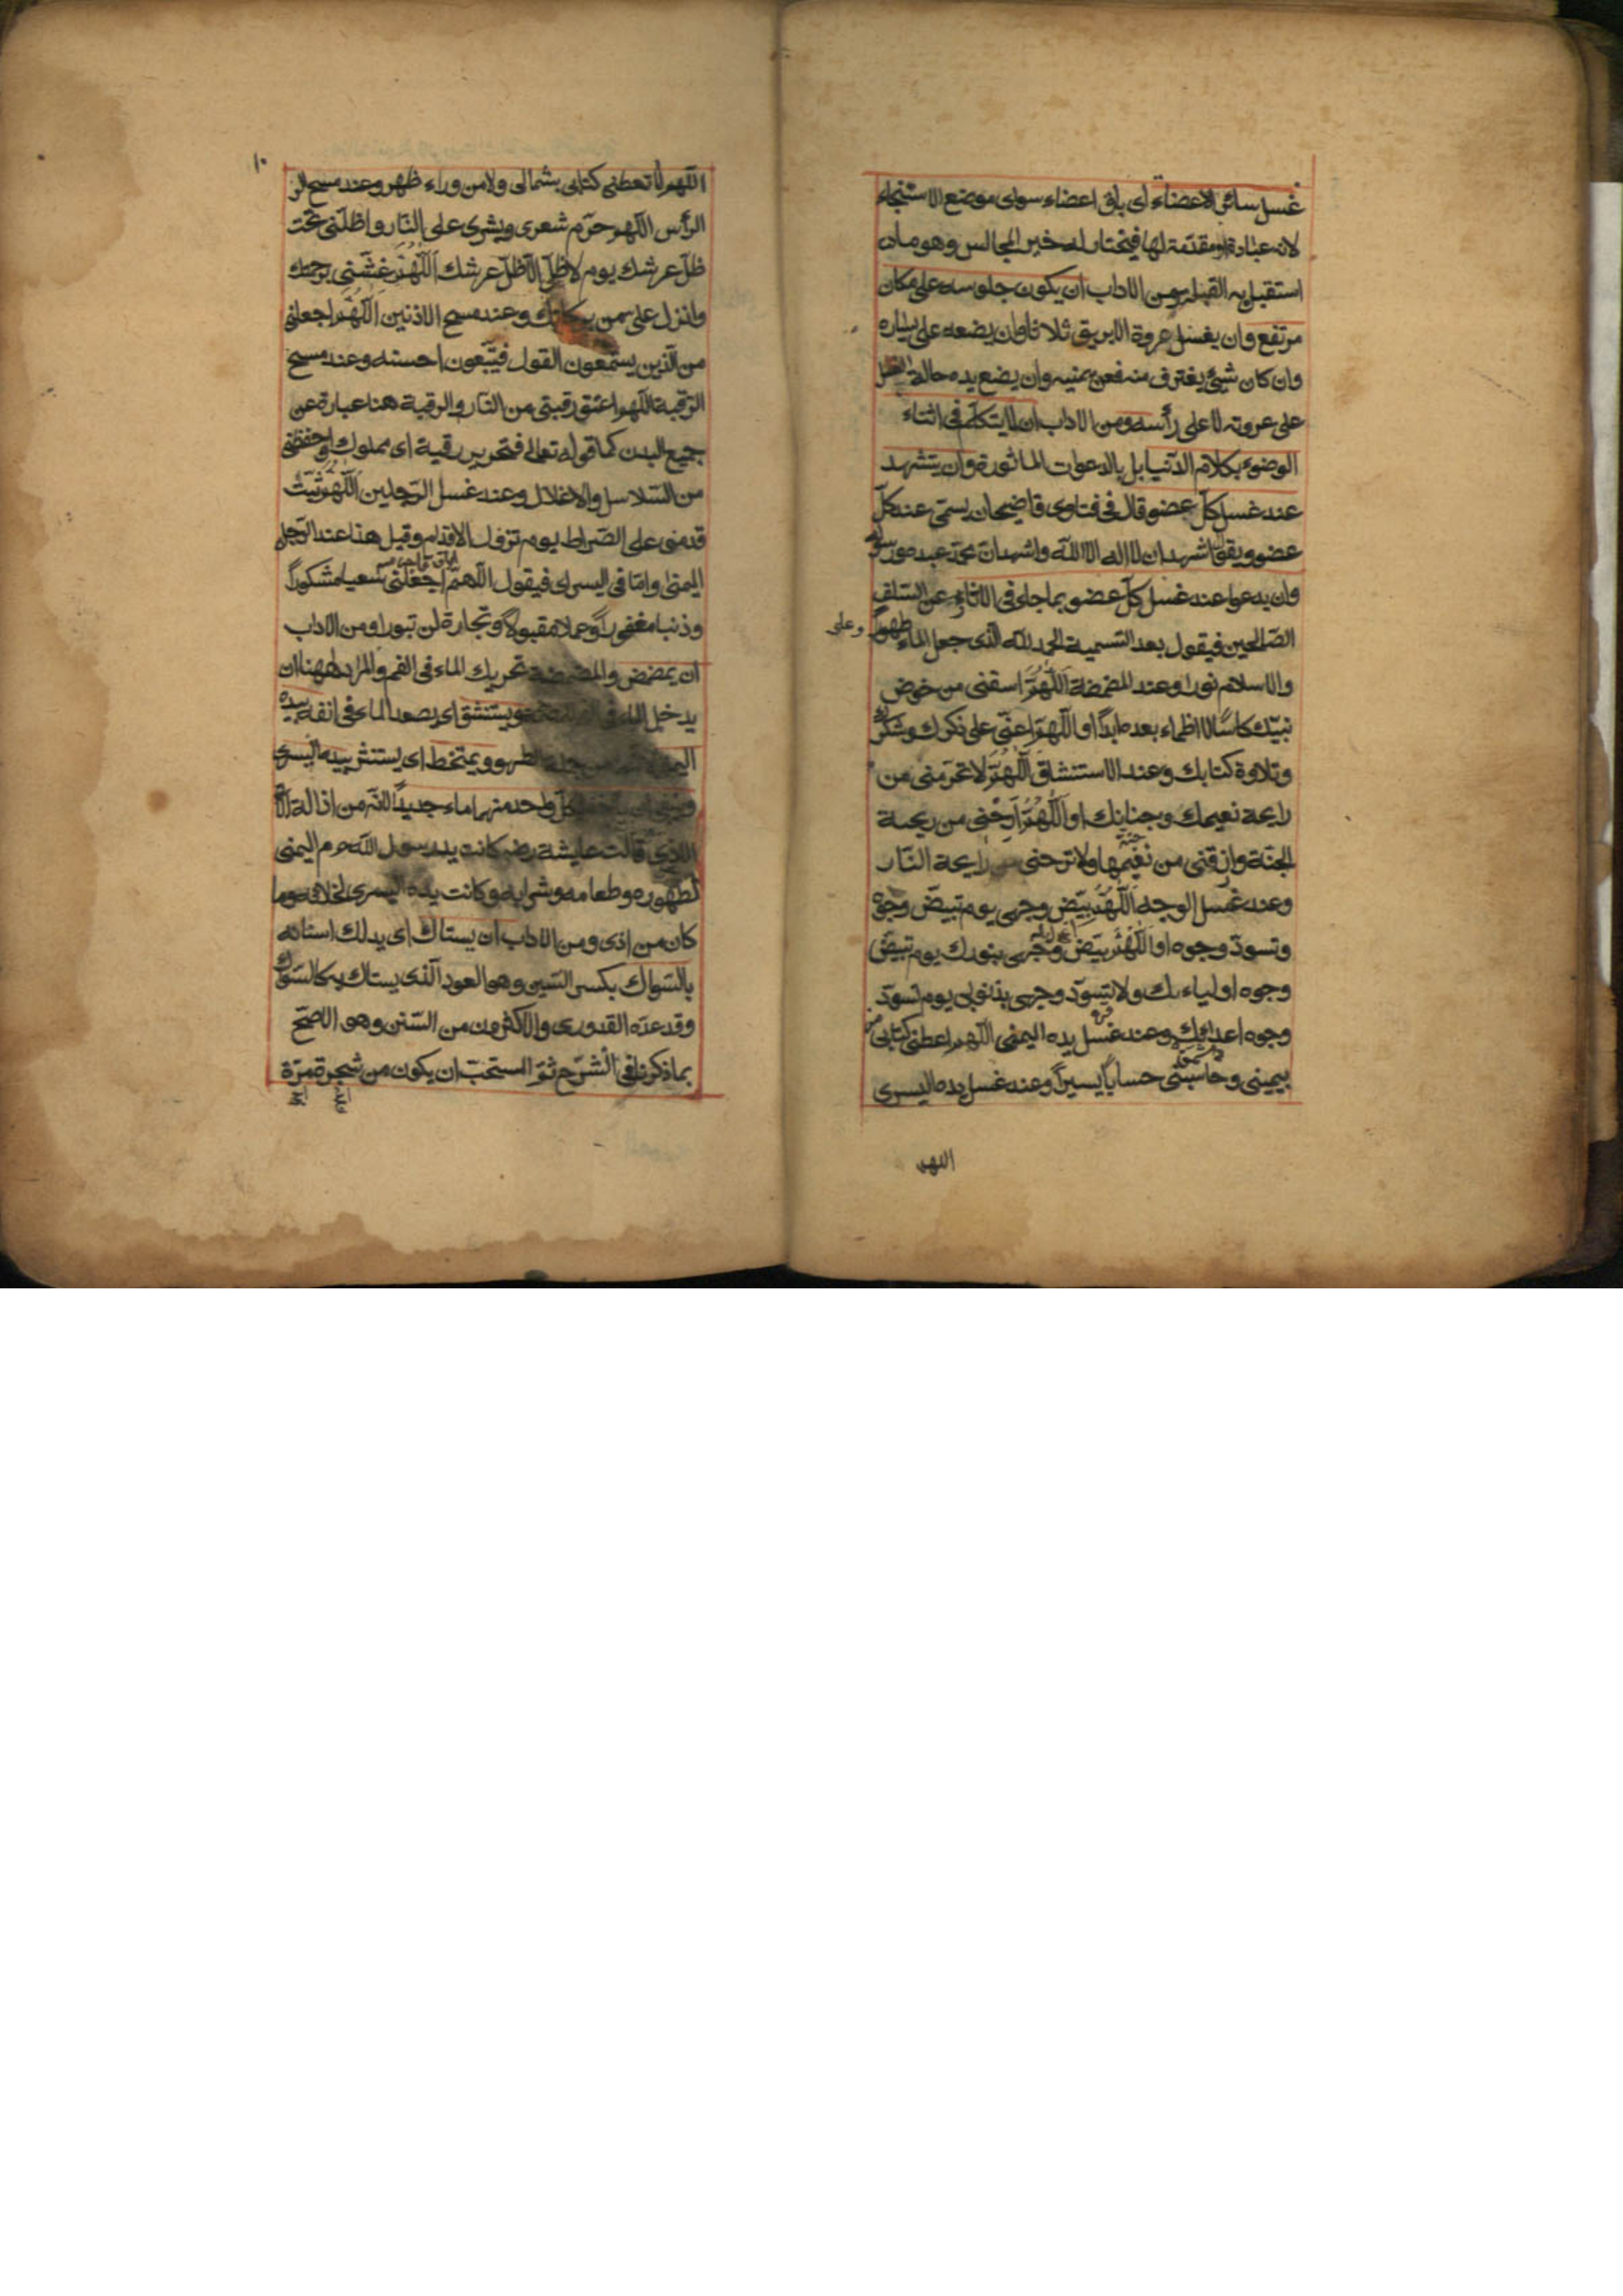 غسل سائر الاعضاء اى باقى اعضاء سوى موضع الاستنجاء
لانه عبادة او مقدّمة لها فيختار له خير المجالس وهو ما
استقبل به القبلة ومن الاداب ان يكون جلوسه على مكان
مرتفع وان يغسل عروة الابريق ثلاثا وان يضعه على يساره
وان كان شيئ يغترف منه فعن يمنيه وان يضع يده حالة الغسل
على عروته لا على رأسه ومن الاداب ان لا يتكلّم فى اثناء
الوضوء بكلام الدّنيا بل بالدعوات الماثورة وان يتشهد
عند غسل كلّ عضو قال فى فتاوى قاضيخان يسمّى عند كلّ
عضو ويقول اشهد ان لا اله الا اللّه واشهد انّ محمّد عبده ورسوله
وان يدعوا عند غسل كلّ عضو بما جاء فى الاثار عن السّلف
الصّالحين فيقول بعد التسمية الحمد للّه الّذى جعل الماء طهورًا
وعلى
والاسلام نورا وعند المضمضة اللّهمّ اسقنى من حوض
نبيّك كاسًا لا اظماء بعده ابدًا او اللّهمّ اعنّى على ذكرك وشكرك
وتلاوة كتابك وعند الاستنشاق اللّهمّ لا تحرمنى من
رايحة نعيمك وجنانك او اللّهمّ ارحنى من ريحة
الجنّة وارزقنى من نعيمها ولا ترحنى من رايحة النّار
وعند غسل الوجه اللّهمّ بيّض وجهى يوم تبيضّ وجوه
وتسودّ وجوه او اللّهمّ بيّض وجهى بنورك يوم تبيضّ
وجوه اولياءك ولا تسوّد وجهى بذنوبى يوم تسودّ
وجوه اعدائك وعند غسل يده اليمنى اللّهم اعطنى كتابى
بيمينى وحاسبنى حسابًا يسيرًا وعند غسل يده اليسرى
اللهم
١٠
اللّهم لا تعطنى كتابى بشمالى ولا من وراء ظهر وعند مسح الر
الرأس اللّهم حرّم شعرى وبشرى على النّار واظلّنى تحت
ظلّ عرشك يوم لا ظلّ الّا ظلّ عرشك اللّهمّ غشّنى برحمتك
وانزل علىّ من بركاتك وعند مسح الاذنين اللّهمّ اجعلنى
من الّذين يستمعون القول فيتّبعون احسنه وعند مسح
الرّقبة اللّهم اعتق رقبتى من النّار والرقبة هنا عبارة عن
جميع البدن كما قوله تعالى فتحرير رقبة اى مملوك واحفظنى
من السّلاسل والاغلال وعند غسل الرّجلين اللّهمّ ثبّت
قدمىّ على الصّراط يوم تزول الاقدام وقيل هذا عند الرّجل
اليمنى وامّا فى اليسرى فيقول اللّهمّ اجعلنى سعيا مشكورًا
وذنبا مغفورًا وعملا مقبولًا وتجارة لن تبورا ومن الاداب
ان يمضمض والمضمضة تحريك الماء فى الفم والمراد ههنا ان
يدخل الماء فى ويستنشق اى يصعد الماء فى انفه بيده
اليمنى ويمتخط اى يستنثر بيده اليسرى
لكلّ واحد منهما ماء جديدًا لانّه من ازالة
الاذى قالت عايشة رضـ كانت يد رسول اللّه ص م اليمنى
لطهوره وطعامه وشرابه وكانت يده اليسرى لخلائه وما
كان من اذى ومن الاداب ان يستاك اى يدلك اسنانه
بالسّواك بكسر السّين وهو العود الّذى يستاك به كالسّواك
وقد عدّه القدورى والاكثرون من السّنن وهو الاصحّ
بما ذكرنا فى الشّرح ثمّ المستحبّ ان يكون من شجرة مرّة